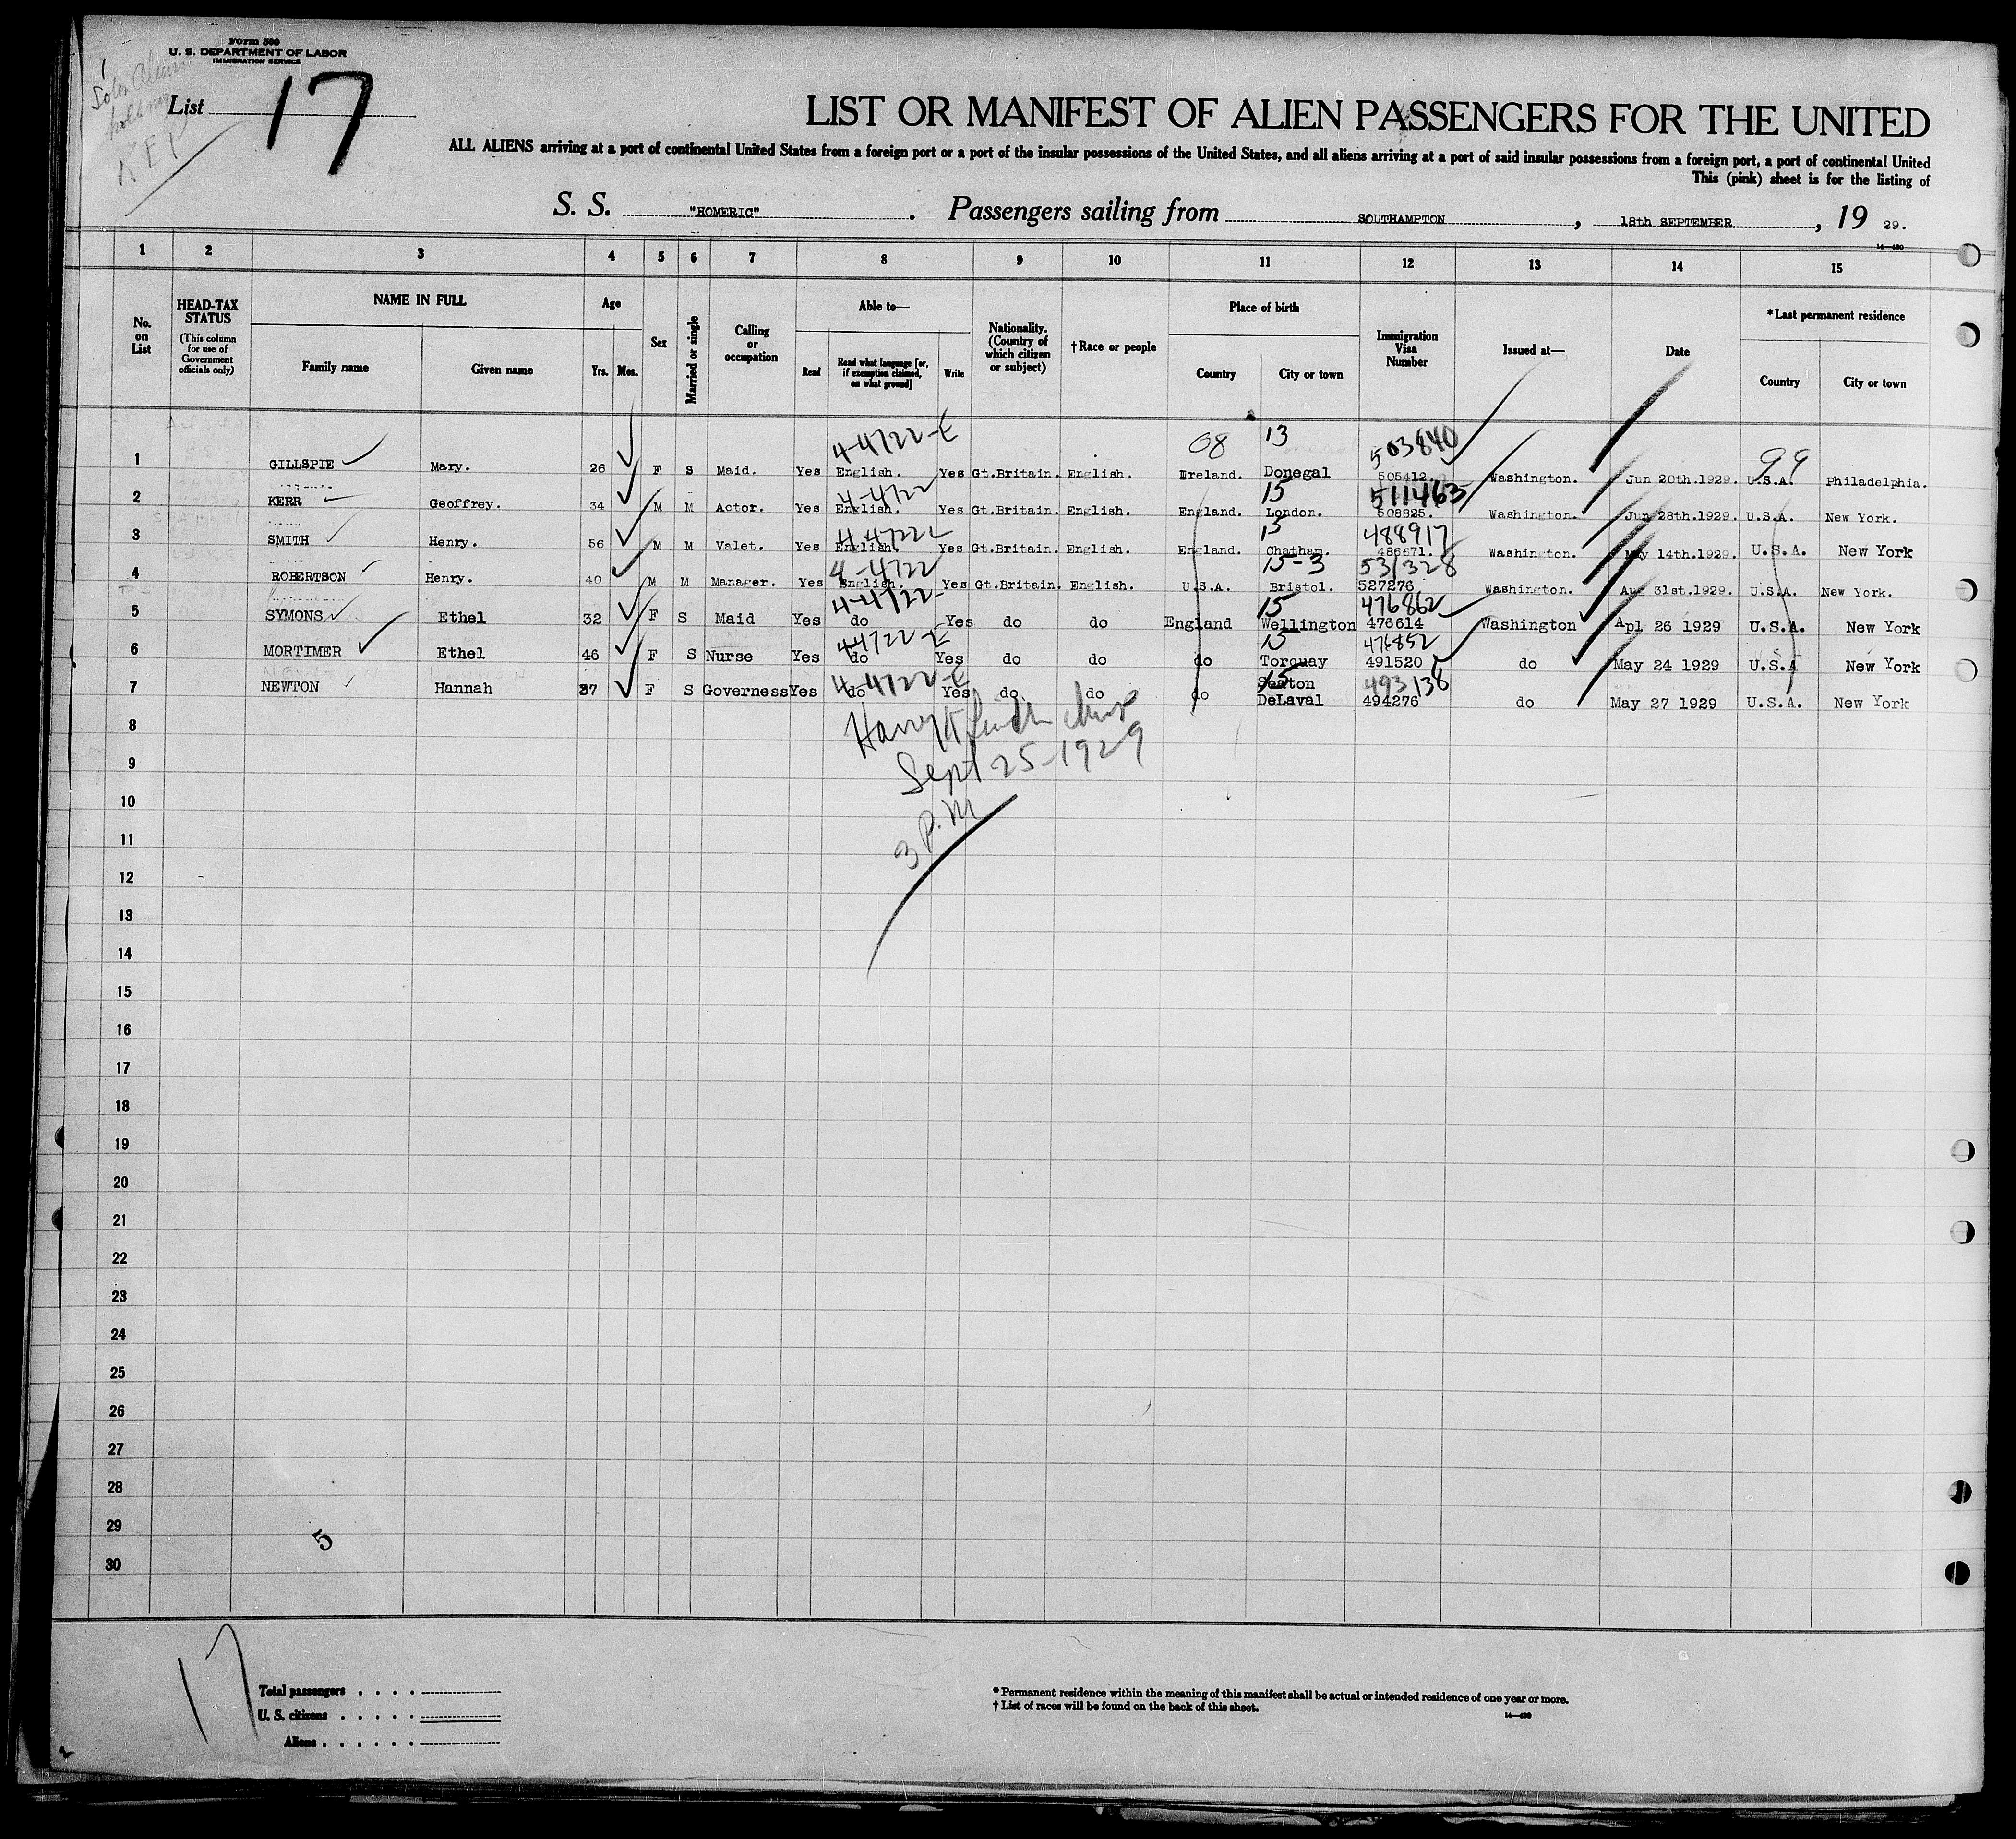 Form 500
U. S. DEPARTMENT OF LABOR
IMMIGRATION SERVICE
List 17
KEY
LIST OR MANIFEST OF ALIEN PASSENGERS FOR THE UNITED
ALL ALIENS arriving at a port of continental United States from a foreign port or a port of the insular possessions of the United States, and all aliens arriving at a port of said insular possessions from a foreign port, a port of continental United
This (pink) sheet is for the listing of
S. S. "HOMERIC". Passengers sailing from SOUTHAMPTON, 18th SEPTEMBER, 19 29.
1 2 3 4 5 6 7 8 9 10 11 12 13 14 15
No. on List
HEAD-TAX STATUS (This column for use of Government officials only)
NAME IN FULL
Family name Given name
Age
Yrs. Mos.
Sex
Married or single
Calling or occupation
Able to—
Read Read what language [or, if exemption claimed, on what ground] Write
Nationality. (Country of which citizen or subject)
†Race or people
Place of birth
Country City or town
Immigration Visa Number
Issued at—
Date
*Last permanent residence
Country City or town
4-4722-E 08 13 503840 99
1 GILLSPIE Mary. 26 F S Maid. Yes English. Yes Gt.Britain. English. Ireland. Donegal 505412. Washington. Jun 20th.1929. U.S.A. Philadelphia.
4-4722 15 511463
2 KERR Geoffrey. 34 M M Actor. Yes English. Yes Gt.Britain. English. England. London. 508825. Washington. Jun 28th.1929. U.S.A. New York.
4-4722 15 488917
3 SMITH Henry. 56 M M Valet. Yes English. Yes Gt.Britain. English. England. Chatham. 486671. Washington. May 14th.1929. U.S.A. New York
4-4722 15-3 531328
4 ROBERTSON Henry. 40 M M Manager. Yes English. Yes Gt.Britain. English. U.S.A. Bristol. 527276 Washington. Aug 31st.1929. U.S.A. New York.
4-4722 15 476862
5 SYMONS Ethel 32 F S Maid Yes do Yes do do England Wellington 476614 Washington Apl 26 1929 U.S.A. New York
4-4722-E 15 476852
6 MORTIMER Ethel 46 F S Nurse Yes do Yes do do do Torquay 491520 do May 24 1929 U.S.A New York
4-4722-E 15 Seaton 493138
7 NEWTON Hannah 37 F S Governess Yes do Yes do do do DeLaval 494276 do May 27 1929 U.S.A. New York
8
Sept 25-1929
9
10
3 P.M
11
12
13
14
15
16
17
18
19
20
21
22
23
24
25
26
27
28
29
5
30
17
Total passengers
U. S. citizens
Aliens
* Permanent residence within the meaning of this manifest shall be actual or intended residence of one year or more.
† List of races will be found on the back of this sheet.